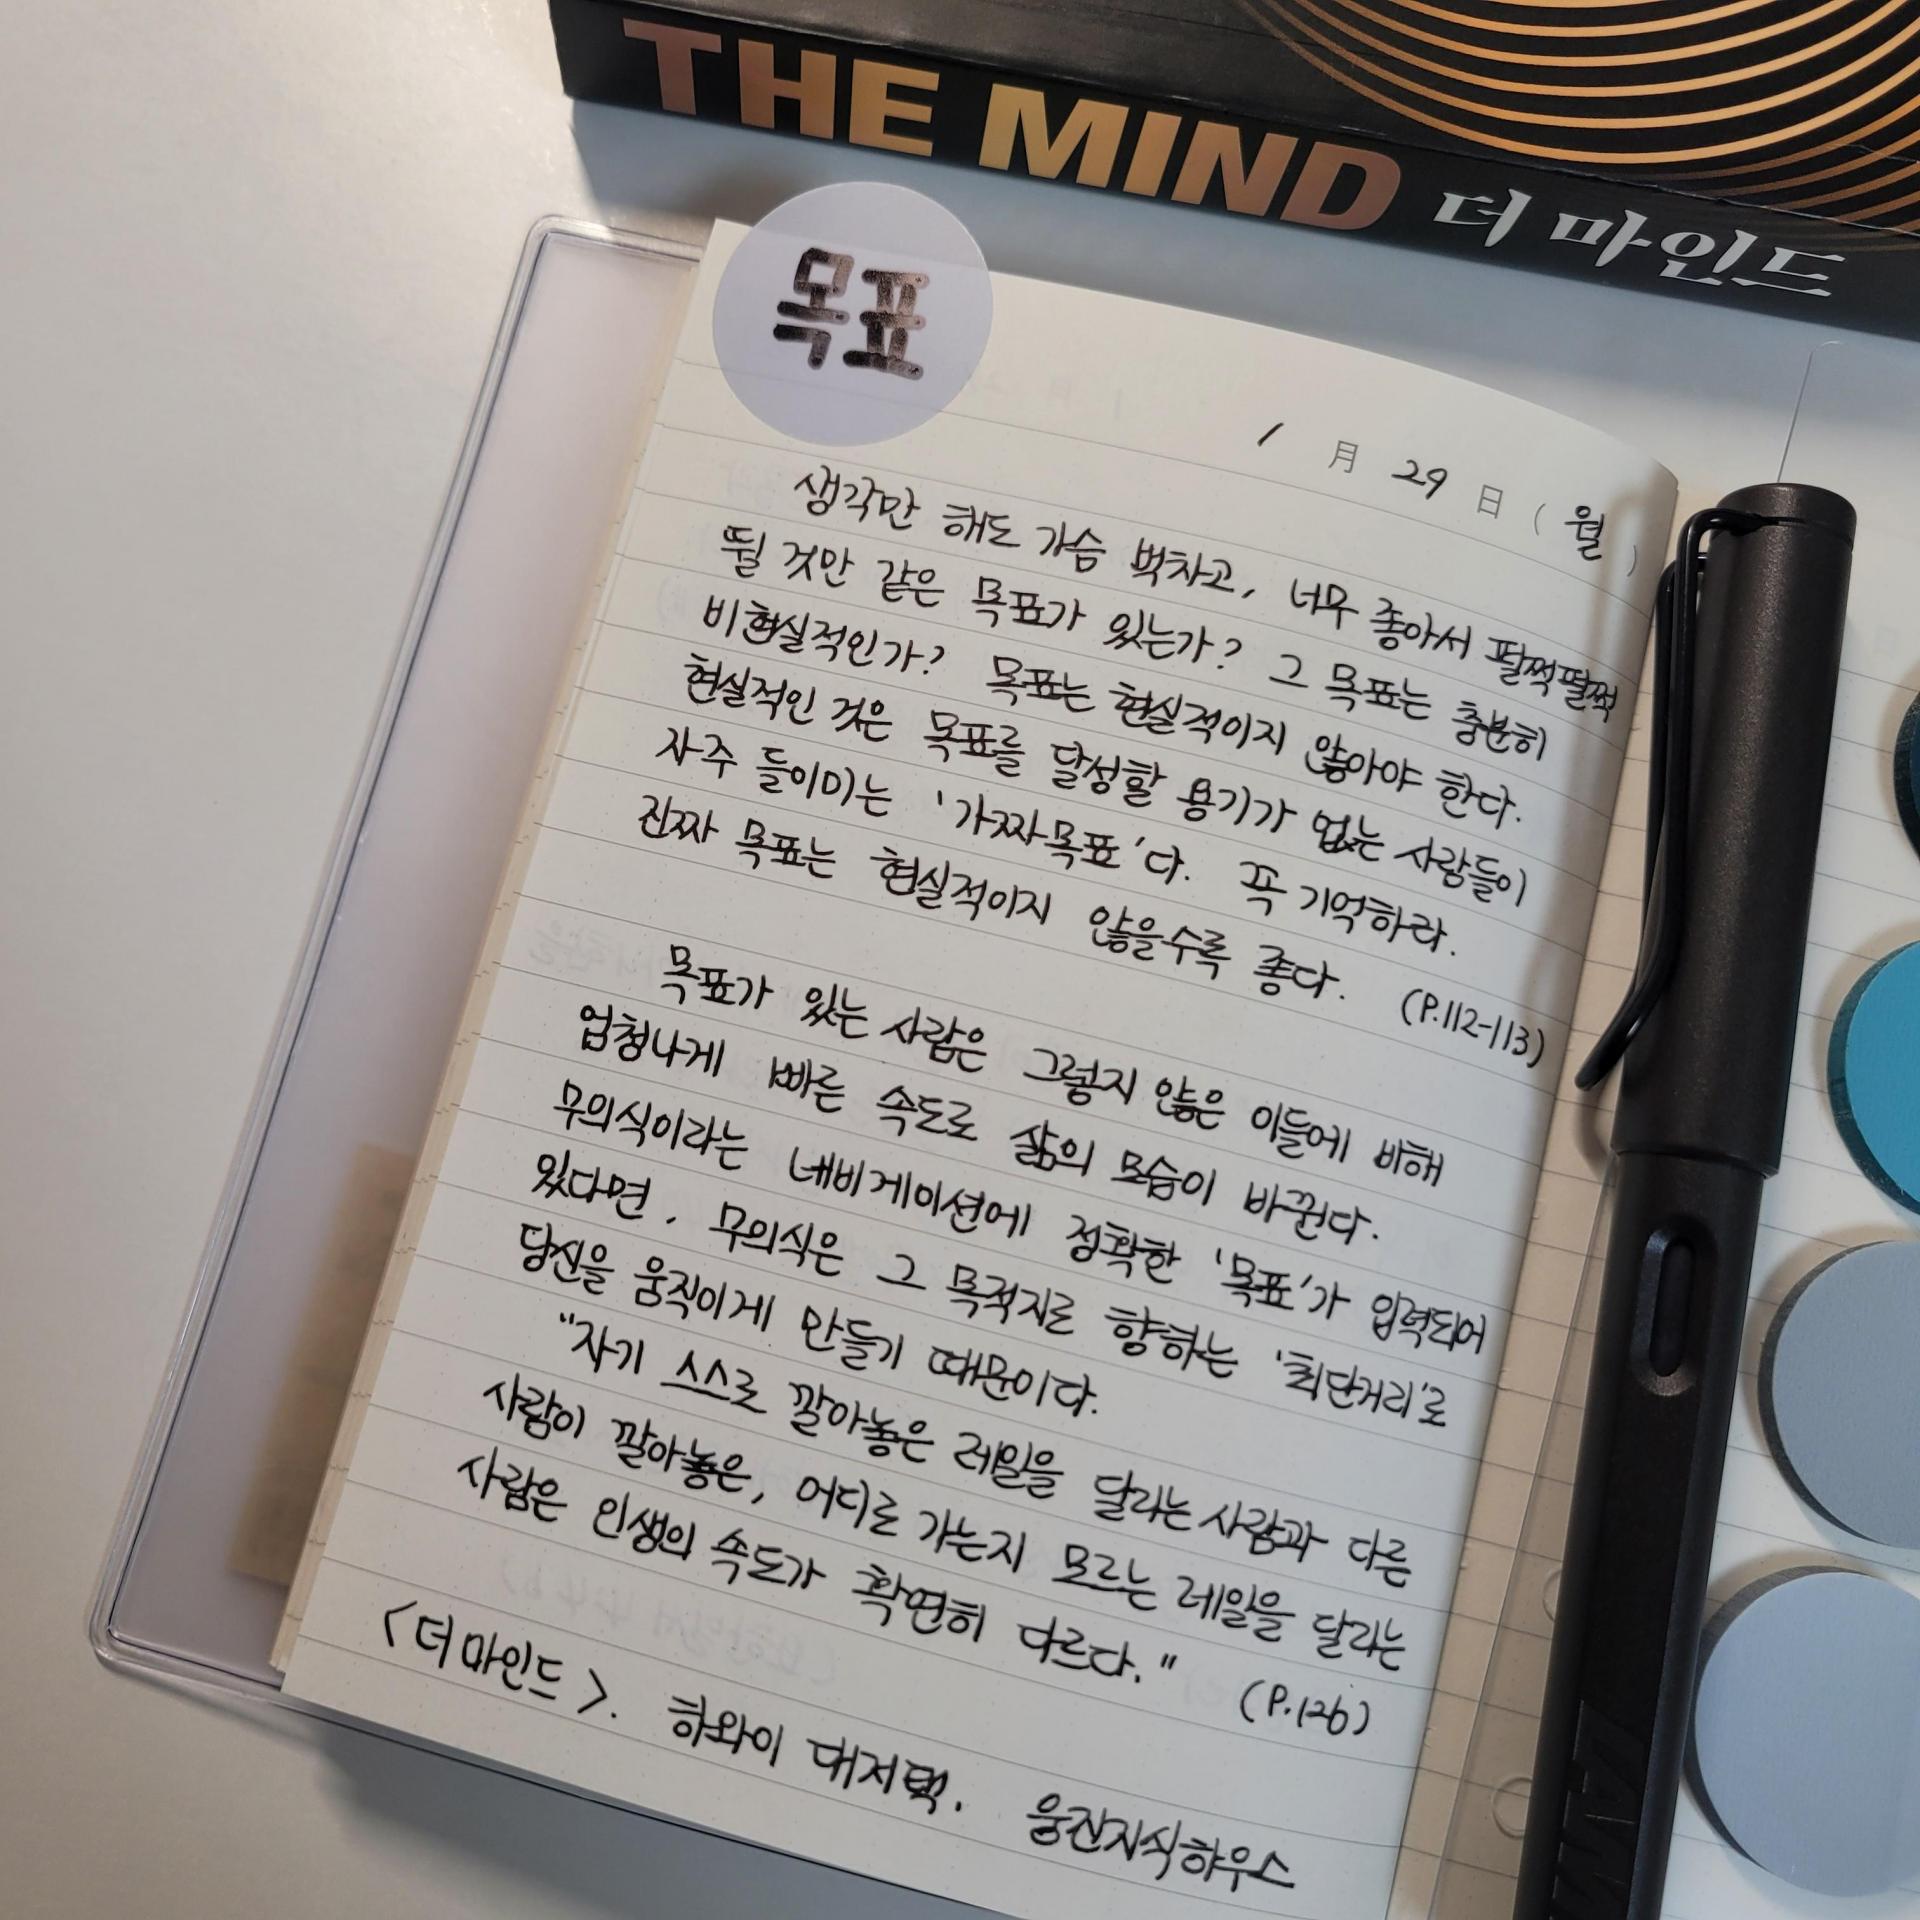 THE MIND 더 마인드
목표
1 月 29 日 ( 월 )
생각만 해도 가슴 벅차고, 너무 좋아서 팔짝팔짝
뛸 것만 같은 목표가 있는가? 그 목표는 충분히
비현실적인가? 목표는 현실적이지 않아야 한다.
현실적인 것은 목표를 달성할 용기가 없는 사람들이
자주 들이미는 '가짜목표'다. 꼭 기억하라.
진짜 목표는 현실적이지 않을수록 좋다. (P.112-113)
목표가 있는 사람은 그렇지 않은 이들에 비해
엄청나게 빠른 속도로 삶의 모습이 바뀐다.
무의식이라는 네비게이션에 정확한 '목표'가 입력되어
있다면, 무의식은 그 목적지로 향하는 '최단거리'로
당신을 움직이게 만들기 때문이다.
"자기 스스로 깔아놓은 레일을 달리는 사람과 다른
사람이 깔아놓은, 어디로 가는지 모르는 레일을 달리는
사람은 인생의 속도가 확연히 다르다." (P.126)
<더 마인드>. 하와이 대저택. 웅진지식하우스
LAMY